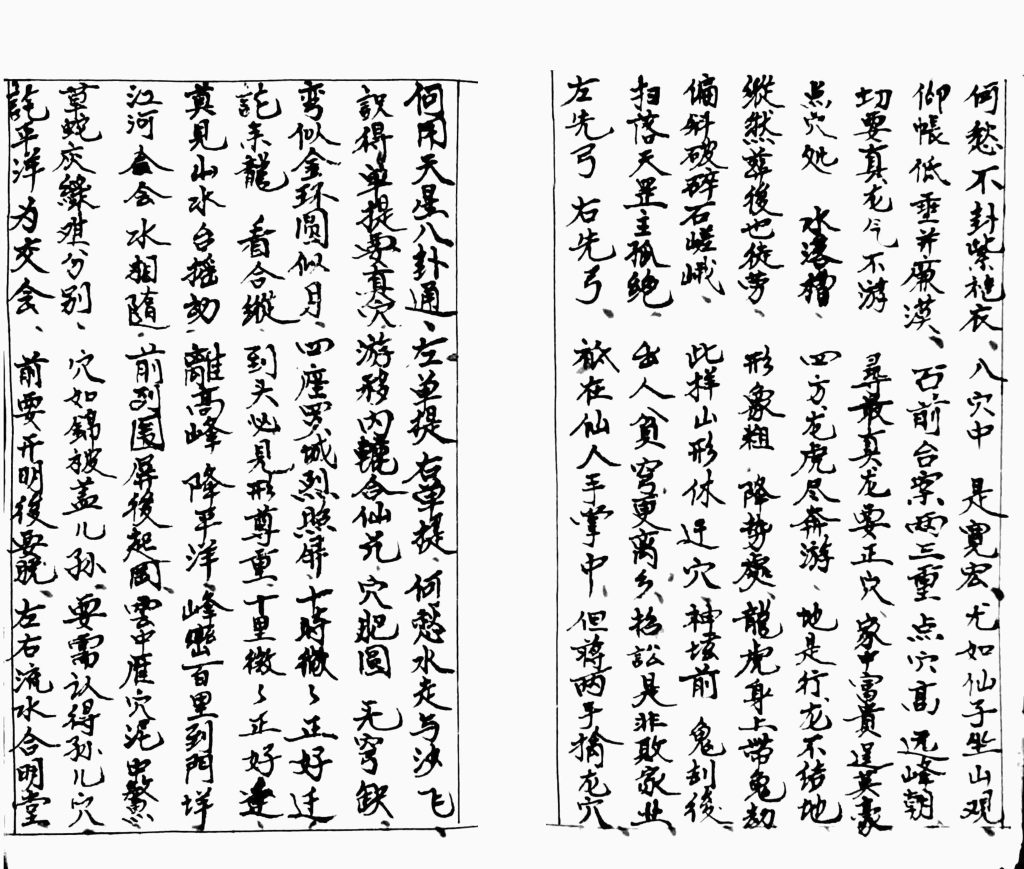 何愁不卦紫袍衣、八穴中 是寬宏、尤如仙子坐山观
仰帳低垂并廉漠、石前台案两三重 点穴高 远峰朝
切要真龙气不游 尋最真龙要正穴 家中富貴逞英豪
点穴处 水落槽 四方龙虎尽奔游、地是行龙不结地
縱然葬後也徒劳、形象粗 降势處、龍虎身上带龟劫
偏斜破碎石嵯峨、此样山形休迁穴 神壇前 鬼刮後
扫落天罡主孤绝 出人貧穷更离乡、招訟是非敗家业
左先弓 右先弓、 在仙人手掌中 但 两手擒龙穴
何用天星八卦通、左单提 右单提、何愁水走与沙飞
識得单提要真穴 游移内 合仙 穴肥圆 无穷缺、
弯似金环圆似月、四座罗城烈照屏、十時微々正好迁
龍 看合縱、到头必見形尊重、十里微々正好迁、
莫見山水自摇动 離高峰 降平洋 峰巒百里到門
江河 会 水相随、前列围屏後起 中雁穴泥中
草蛇灰線难分别、穴如錦被盖儿孙、要需认得孙儿穴
平洋为交会、前要开明後要脱、左右流水合明堂